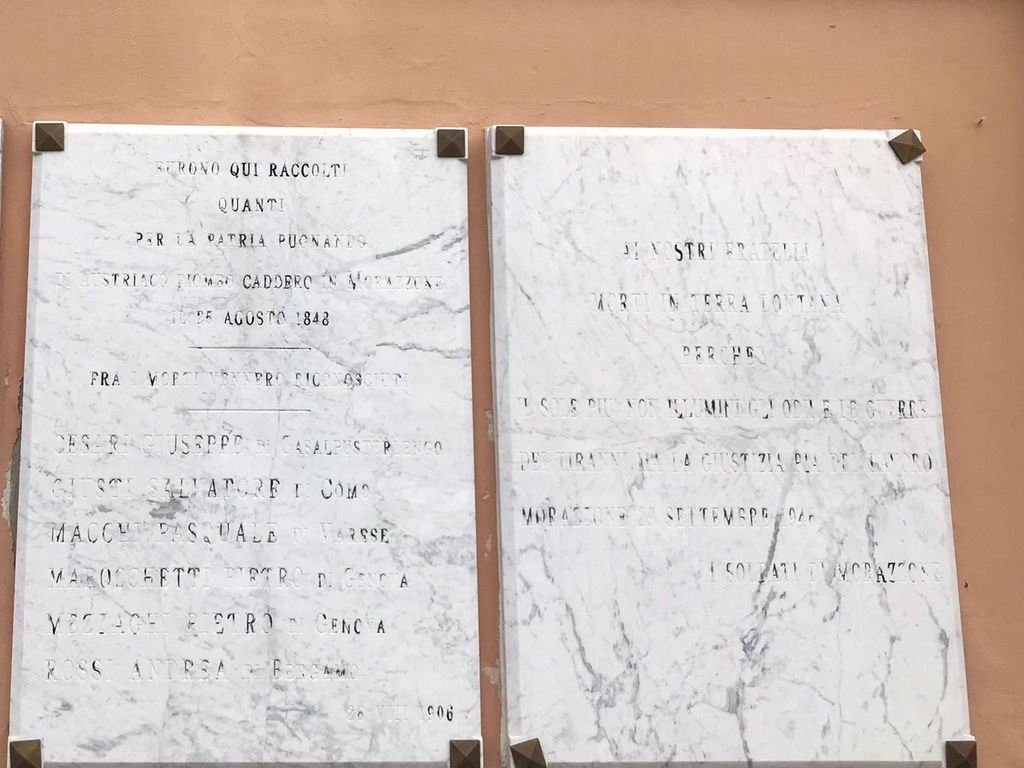 FURONO QUI RACCOLTI
QUANTI
PER LA PATRIA PUGNANDO
DI AUSTRIACO PIOMBO CADDERO IN MORAZZONE
IL 26 AGOSTO 1848
FRA I MORTI VENNERO RICONOSCIUTI
CESARI GIUSEPPE DI CASALPUSTERLENGO
GIUSTI SALVATORE DI COMO
MACCHI PASQUALE DI VARESE
MAROCCHETTI PIETRO DI GENOVA
VEZZAGHI PIETRO DI GENOVA
ROSSI ANDREA DI BERGAMO
26 VIII 1906
AI NOSTRI FRATELLI
MORTI IN TERRA LONTANA
PERCHE
IL SOLE PIU NON ILLUMINI GLI ODI E LE GUERRE
DEI TIRANNI, MA LA GIUSTIZIA PIA DEL LAVORO
MORAZZONE 29 SETTEMBRE 1946
I SOLDATI DI MORAZZONE